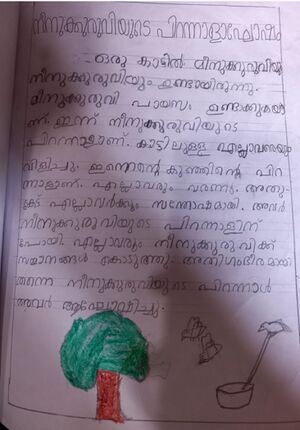 നീനുക്കുരുവിയുടെ പിറന്നാളാഘോഷം
ഒരു കാട്ടിൽ മീനുക്കുരുവിയും
നീനുക്കുരുവിയും ഉണ്ടായിരുന്നു.
മീനുക്കുരുവി പായസം ഉണ്ടാക്കുകയാ
ണ്. ഇന്ന് നീനുക്കുരുവിയുടെ
പിറന്നാളാണ്. കാട്ടിലുള്ള എല്ലാവരെയും
വിളിച്ചു. ഇന്നെന്റെ കുഞ്ഞിന്റെ പിറ
ന്നാളാണ്. എല്ലാവരും വരണം. അതു
കേട്ട് എല്ലാവർക്കും സന്തോഷമായി. അവർ
നീനുക്കുരുവിയുടെ പിറന്നാളിന്
പോയി. എല്ലാവരും നീനുക്കുരുവിക്ക്
സമ്മാനങ്ങൾ കൊടുത്തു. അതിഗംഭീരമായി
തന്നെ നീനുക്കുരുവിയുടെ പിറന്നാൾ
അവർ ആഘോഷിച്ചു.